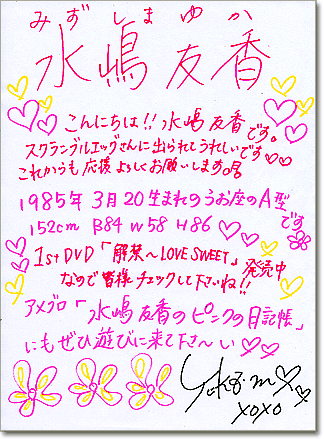 みずしまゆか
水嶋友香
こんにちは!!水嶋友香です。
スクランブルエッグさんに出られてうれしいです♡♡
これからも応援よろしくお願いします。
1985年3月20生まれのうお座のA型
です
152cm B84 W58 H86 ♡♡
1st DVD「解禁〜LOVE SWEET」発売中
なので皆様チェックして下さいね!!
アメブロ「水嶋友香のピンクの日記帳」
にもぜひ遊びに来て下さ〜い♡♡
xoxo